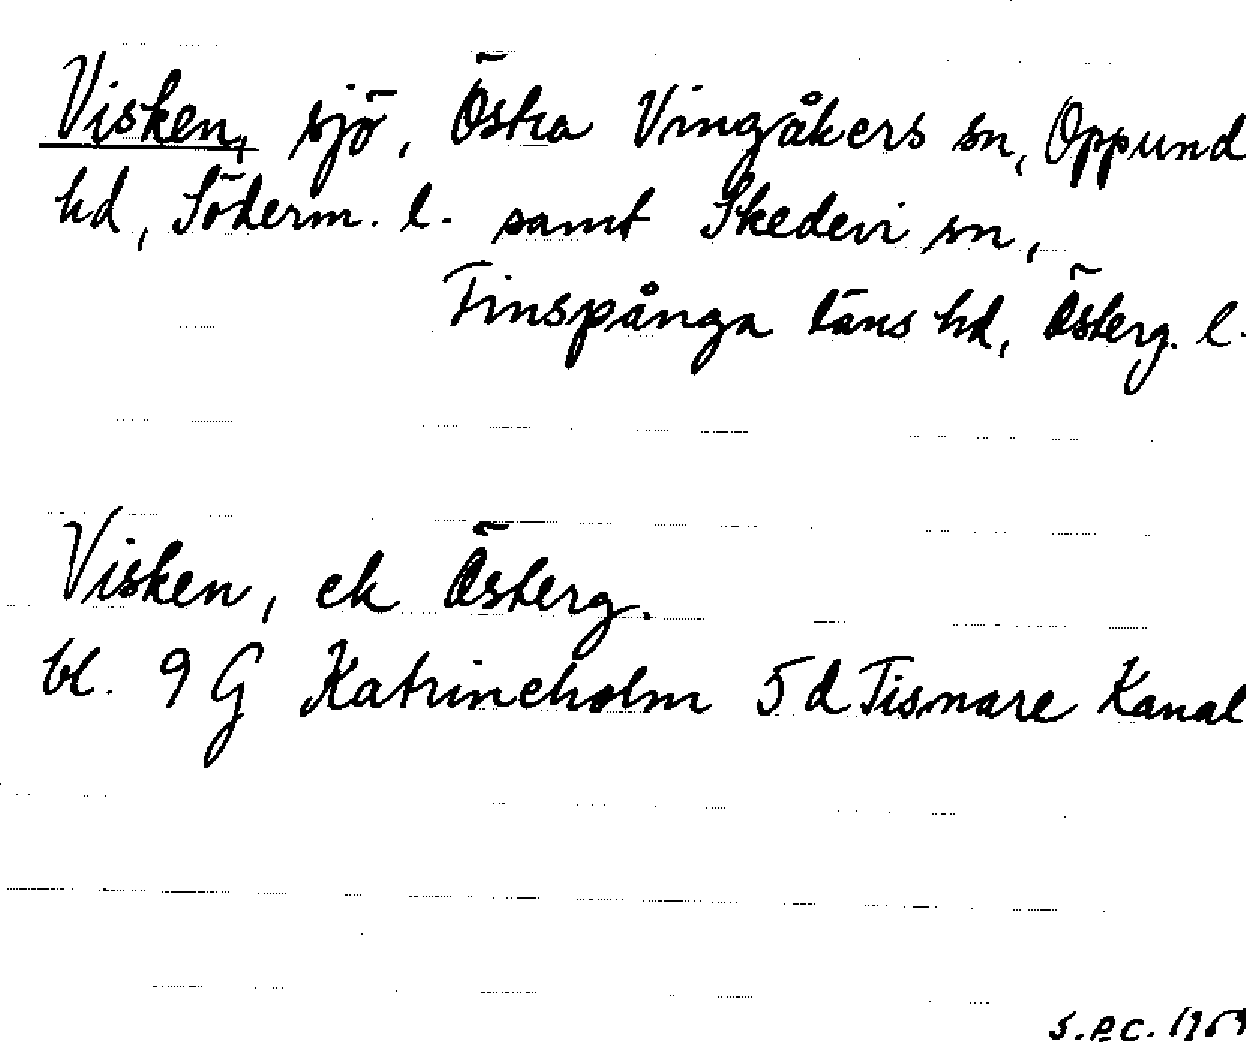 Visken, sjö, Östra Vingåkers sn, Oppund
hd, Söderm. l. samt Skedevi sn,
Finspånga läns hd, Österg. l.
Visken, ek Österg.
bl. 9 G Katrineholm 5 d Tisnare Kanal
S.P.C.